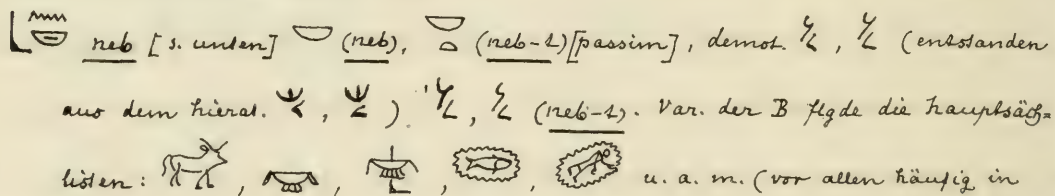 neb [s. unten] (neb), (neb-t) [passim], demot. , (entstanden
aus dem hierat. , ) , (neb-t). Var. der B flgde die hauptsäch=
listen: , , , , u. a. m. (vor allen häufig in